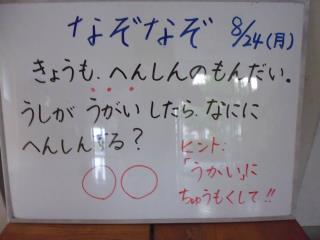 なぞなぞ 8/24(月)
きょうも、へんしんのもんだい。
うしが うがい したら、なにに
へんしんする?
ヒント:
「うがい」に
ちゅうもくして!!